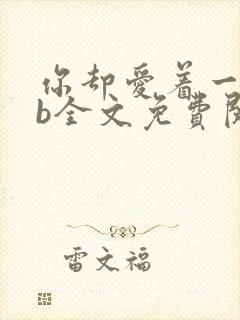 你却爱着一
b全文免费阅
雷文福